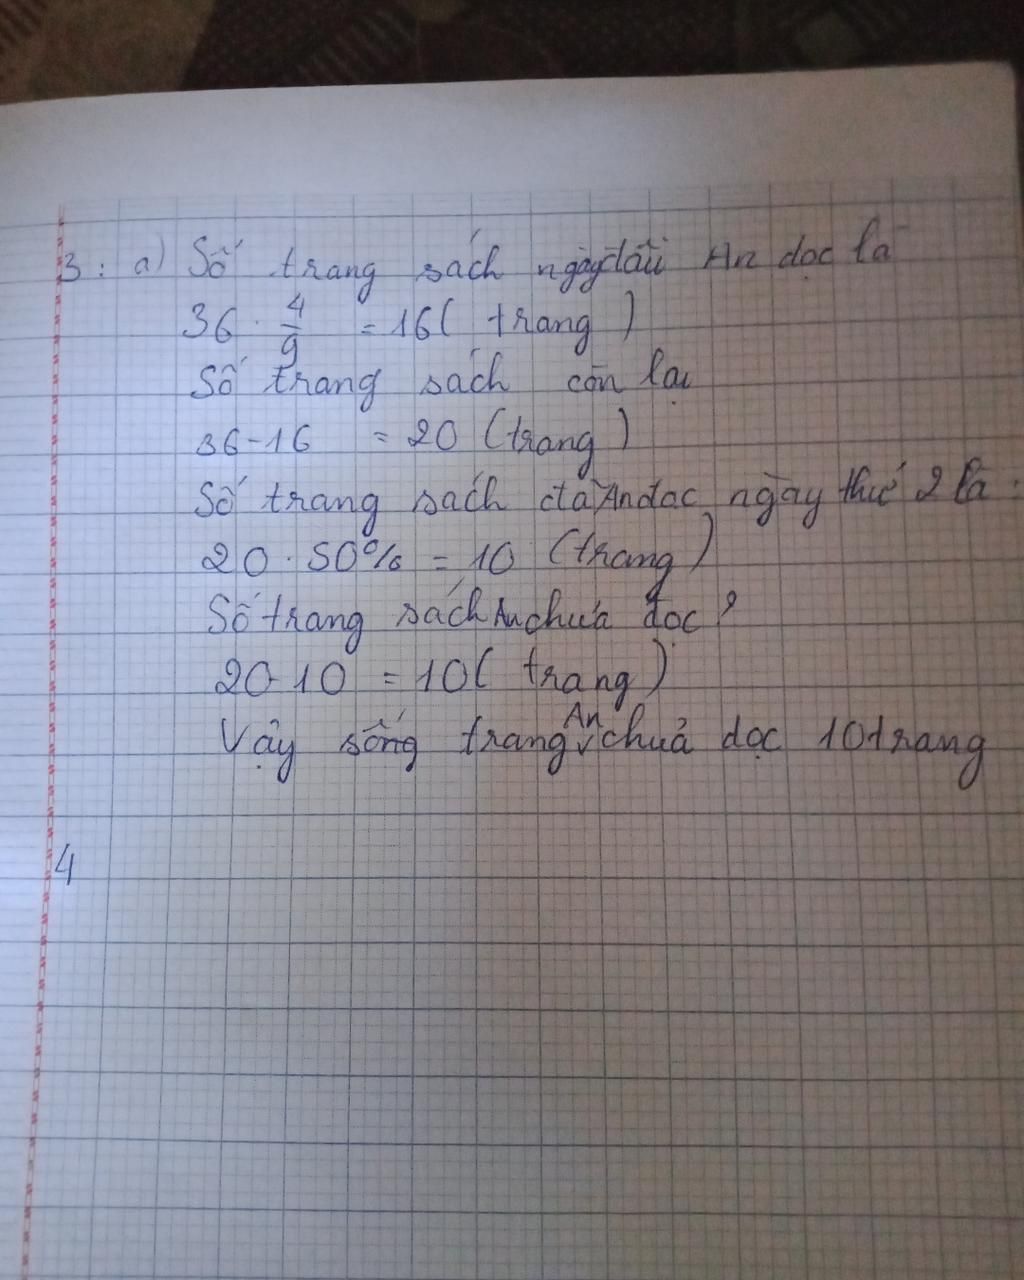 3: a) Số trang sách ngày đầu An dọc là
36 · 4/9 = 16 ( trang )
Số trang sách còn lại
36 - 16 = 20 (trang)
Số trang sách An dọc ngày thứ 2 là:
20 · 50% = 10 (trang)
Số trang sách An chưa đọc?
20 - 10 = 10 ( trang )
Vậy sống trang An chưả dọc 10 trang
4